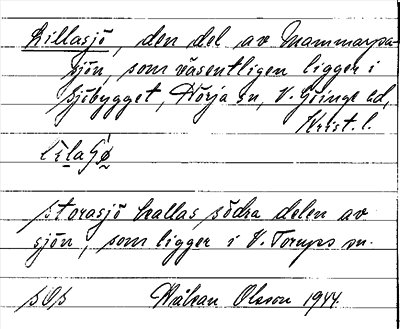 Lillasjö, den del av Mammarpa-
sjön, som väsentligen ligger i
Sjöbygget, Hörja sn, V. Göinge hd,
Krist. l.
storasjö kallas södra delen av
sjön, som ligger i V. Torups sn.
Håkan Olsson 1944.